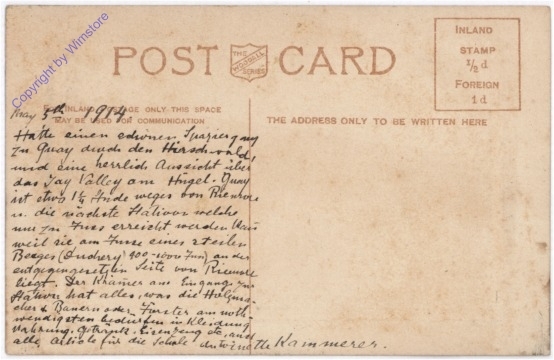 Copyright by Wimstore
POST CARD
THE
WORRALL
SERIES
INLAND
STAMP
½ d.
FOREIGN
1 d.
FOR INLAND POSTAGE ONLY THIS SPACE
MAY BE USED FOR COMMUNICATION
THE ADDRESS ONLY TO BE WRITTEN HERE
May 5th 1914
Hatte einen schönen Spaziergang
zu Quay durch den Hirschwald,
und eine herrlich Aussicht über
das Tay Valley am Hügel. Quay
ist etwa 1½ Stunde weges von
u. die nächste Station welche
nur zu Fuss erreicht werden kann
weil sie am Fusse eines steilen
Berges 900-1000 Fuss) an der
entgegengesetzten Seite von
liegt. Der Krämer am Eingang zur
Station hat alles, was die
& Bauern oder Förster am noth
wendigsten bedürfen in Kleidung
Nahrung, Getränk, Eisenzeug etc. auch
alle Artikle für die Schule Antoinette Kammerer.